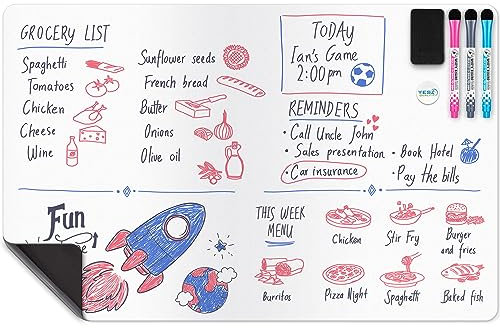 GROCERY LIST
Spaghetti
Tomatoes
Chicken
Cheese
Wine
Sunflower seeds
French bread
Butter
Onions
Olive oil
TODAY
Ian's Game
2:00 pm
REMINDERS
• Call Uncle John
• Sales presentation
• Car insurance
• Book Hotel
• Pay the bills
Fun
THIS WEEK
MENU
Chicken
Stir Fry
Burger
and fries
Burritos
Pizza Night
Spaghetti
Baked fish